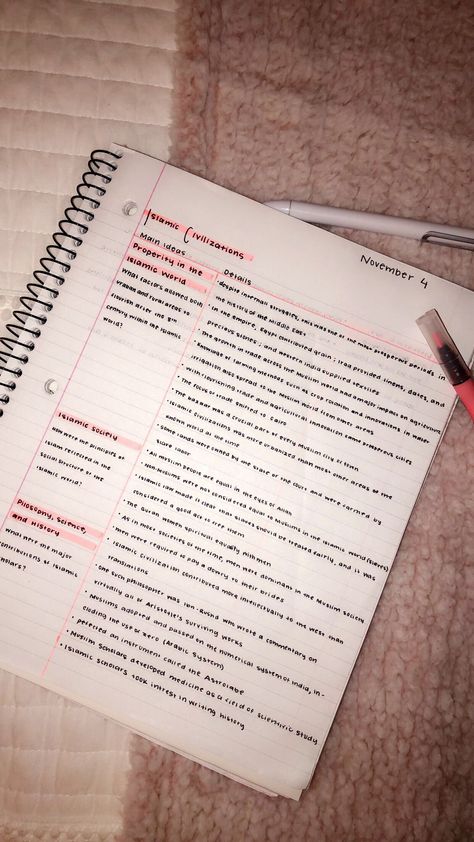 Islamic Civilizations
November 4
Main ideas
Details
Properity in the
Islamic World
What factors allowed both
urban and rural areas to
flourish after the 8th
century within the Islamic
World?
• despite internal struggles, this was one of the most prosperous periods in
the history of the Middle East
• In the empire, Egypt contributed grain; Iraq provided linens, dates, and
precious stones; and western India supplied textiles
• The growth in trade across the Muslim world had a major impact on agriculture
• Exchange of farming methods such as crop rotation and innovations in water
irrigation also spread to the Muslim world from other areas
• With flourishing trade and agricultural innovation came prosperous cities
• The focus of trade shifted to Cairo
• The bazaar was a crucial part of every Muslim city or town
• Islamic civilizations was more organized than most other areas of the
known world at the time
• Some lands were owned by the state or the court and were farmed by
slave labor
Islamic society
How were the principles of
Islam reflected in the
social structure of the
Islamic World?
• All Muslim people are equal in the eyes of Allah
• Non-Muslims were not considered equal to Muslims in the Islamic world
• Islamic law made it clear that slaves should be treated fairly, and it was
considered a good act to free them
• The Quran women spiritual equality with men
• As in most societies of the time, men were dominant in the Muslim society
• Men were required to pay a dowry to their brides
Pilosophy, science,
and history
What were the major
contributions of Islamic
scholars?
• Islamic Civilization contributed more intellectually to the west than
translations
• One such philosopher was Ibn-Rushd who wrote a commentary on
virtually all of Aristotle's surviving works
• Muslims adopted and passed on the numerical system of India, in-
cluding the use of zero (Arabic System)
• perfected an instrument called the Astrolabe
• Muslim scholars developed medicine as a field of scientific study
• Islamic scholars took intrest in writing history